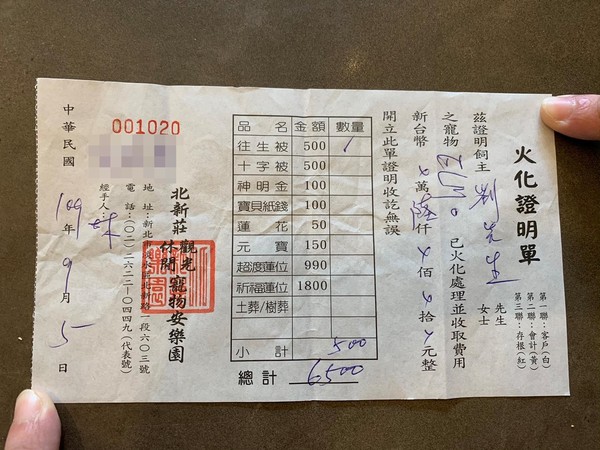 火化證明單
第一聯：客戶(白)
第二聯：會計(黃)
第三聯：存根(紅)
茲證明飼主 劉先生 先生
女士
之寵物 已火化處理並收取費用
新台幣 萬 仟 佰 拾 元整
開立此單證明收訖無誤
品名 金額 數量
往生被 500
十字被 500
神明金 100
寶貝紙錢 100
蓮花 50
元寶 150
超渡蓮位 990
祈福蓮位 1800
土葬/樹葬
小計 500
總計 6500
北新莊 觀光休閒 寵物安樂園
地址：新北市 北新路一段六○三號
電話：(○二)二六二二-○四四九(代表號)
經手人： 林
001020
中華民國 109年9月5日